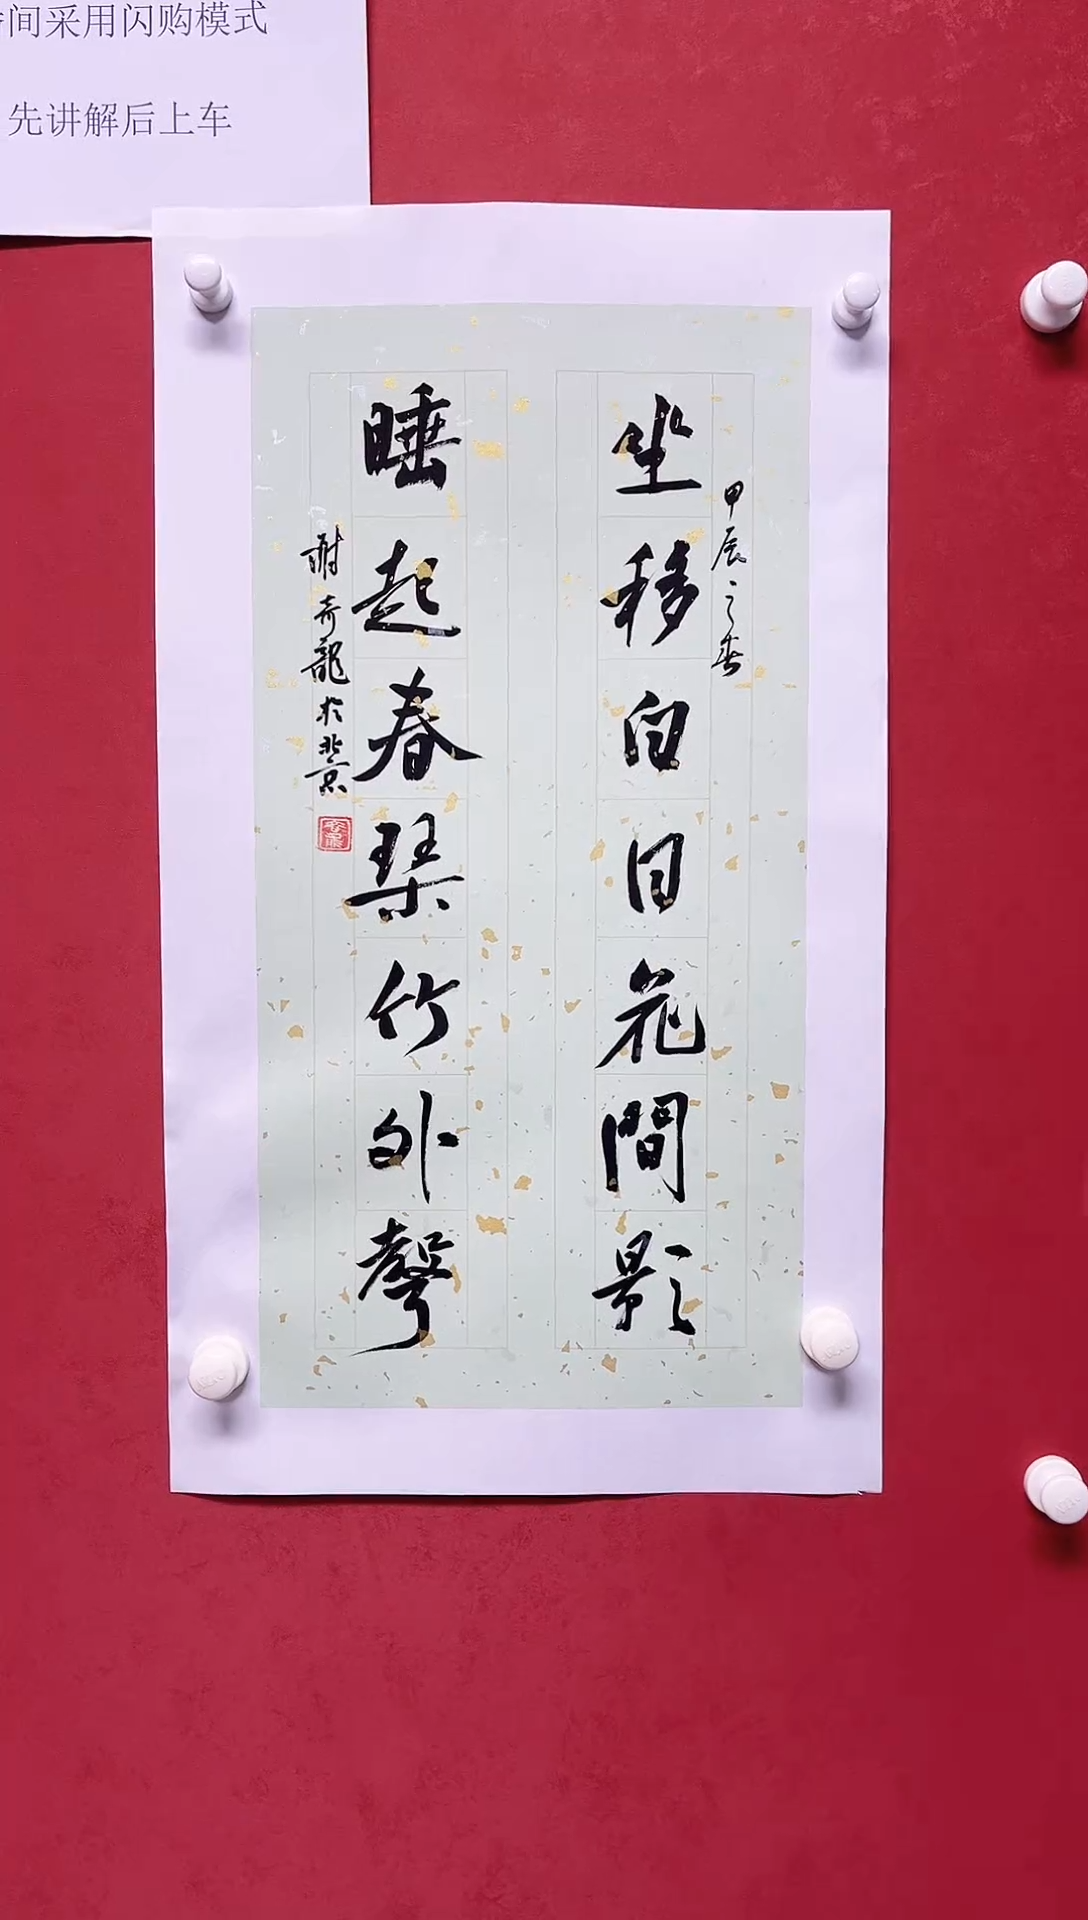 间采用闪购模式
先讲解后上车
甲辰之春
坐移白日花間影
睡起春琴竹外聲
謝奇龍於北京